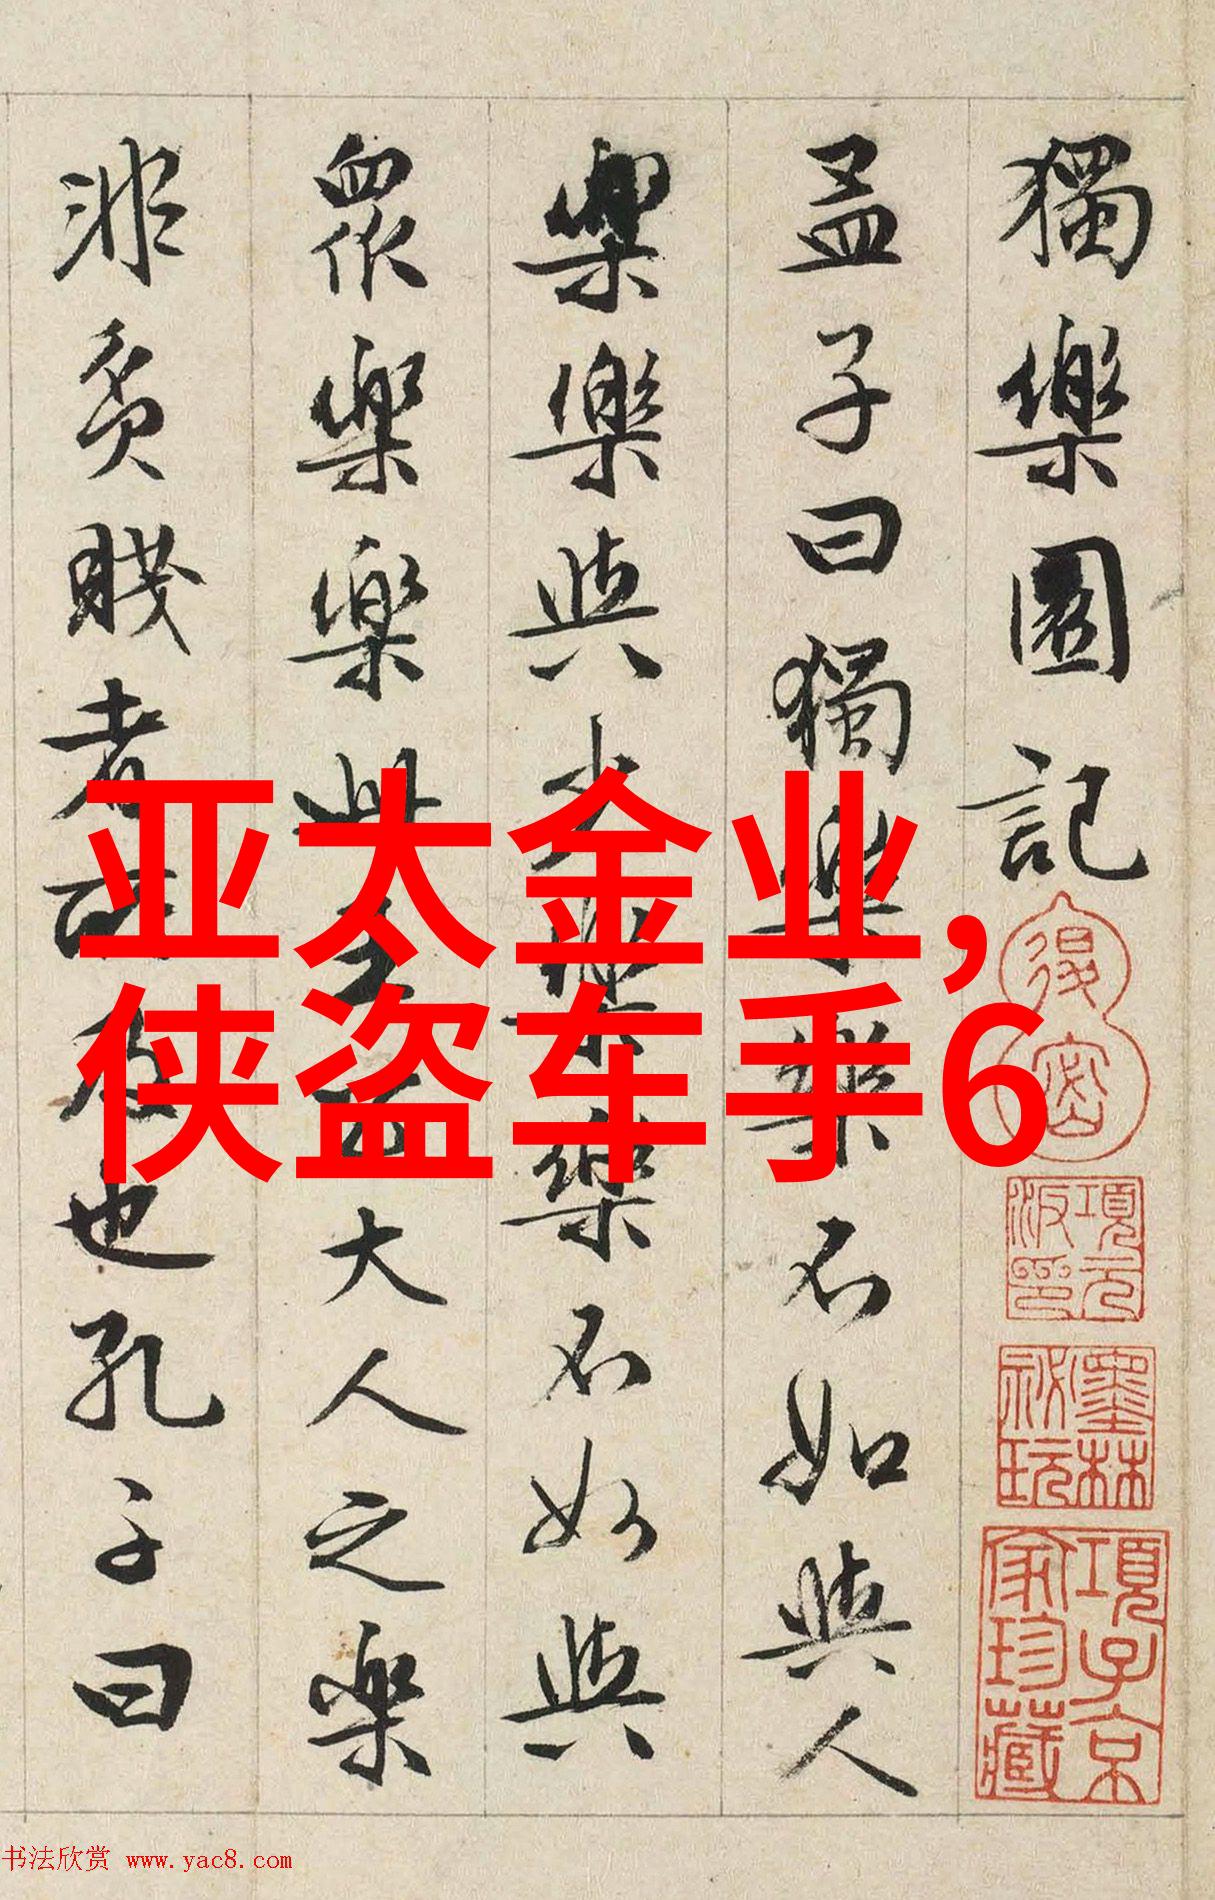 獨樂園記
孟子曰獨樂樂不如與人
樂樂與少樂樂不如與
眾樂樂此王公大人之樂
非貧賤者所及也孔子曰
亚太金业,
侠盗车手6
項元汴印
墨林祕玩
項子京家珍藏
书法欣赏 www.yac8.com